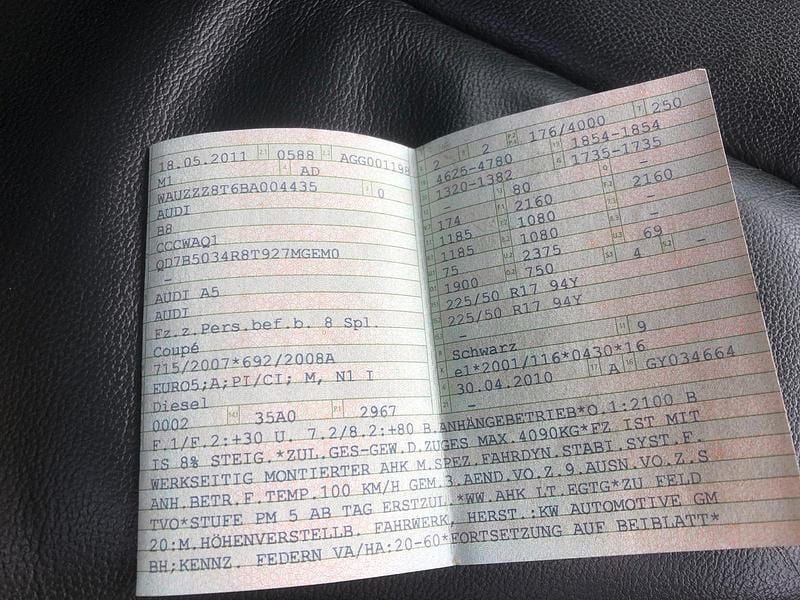 18.05.2011 0588 AGG001198
M1 AD
WAUZZZ8T6BA004435 0
AUDI
B8
CCCWAQ1
QD7B5034R8T927MGEM0
-
AUDI A5
AUDI
Fz.z.Pers.bef.b. 8 Spl.
Coupé
715/2007*692/2008A
EURO5;A;PI/CI; M, N1 I
Diesel
0002 35A0 2967
2 2 176/4000 250
4625-4780 1854-1854
1320-1382 1735-1735
- 80 -
174 2160 2160
1185 1080 -
1185 1080 -
75 2375 69
1900 750 4 -
225/50 R17 94Y
225/50 R17 94Y
-
-
Schwarz 9
e1*2001/116*0430*16
30.04.2010 A GY034664
-
F.1/F.2:+30 U. 7.2/8.2:+80 B.ANHÄNGEBETRIEB*O.1:2100 B
IS 8% STEIG.*ZUL.GES-GEW.D.ZUGES MAX.4090KG*FZ IST MIT
WERKSEITIG MONTIERTER AHK M.SPEZ.FAHRDYN.STABI.SYST.F.
ANH.BETR.F.TEMP.100 KM/H GEM.3.AEND.VO.Z.9.AUSN.VO.Z.S
TVO*STUFE PM 5 AB TAG ERSTZUL.*WW.AHK LT.EGTG*ZU FELD
20:M.HÖHENVERSTELLB. FAHRWERK, HERST.:KW AUTOMOTIVE GM
BH;KENNZ. FEDERN VA/HA:20-60*FORTSETZUNG AUF BEIBLATT*